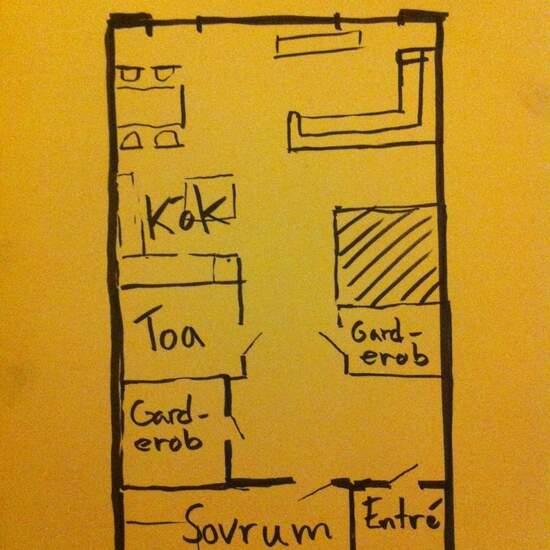 Kök
Toa
Gard-
erob
Gard-
erob
Sovrum
Entré